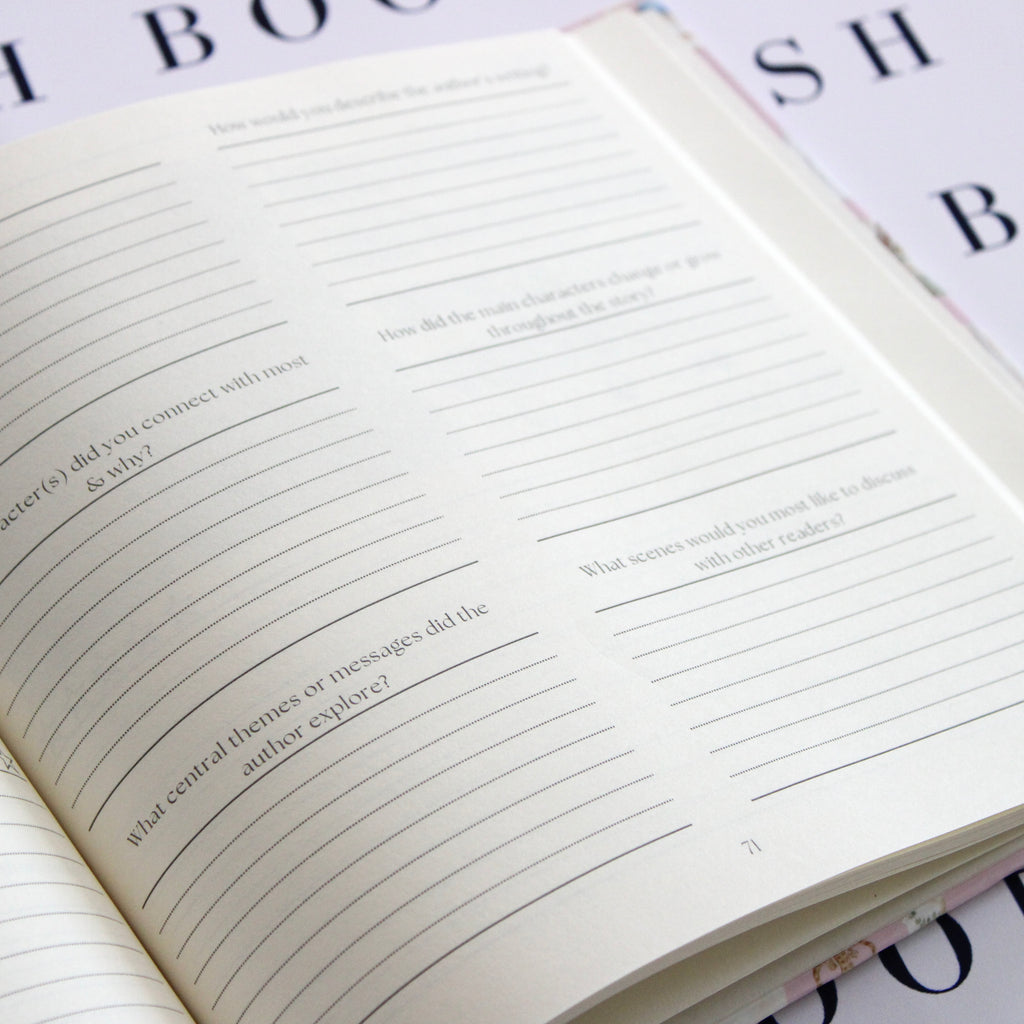 H BOO
SH
B
How would you describe the author's writing?
How did the main characters change or grow
throughout the story?
What scenes would you most like to discuss
with other readers?
acter(s) did you connect with most
& why?
What central themes or messages did the
author explore?
71
O